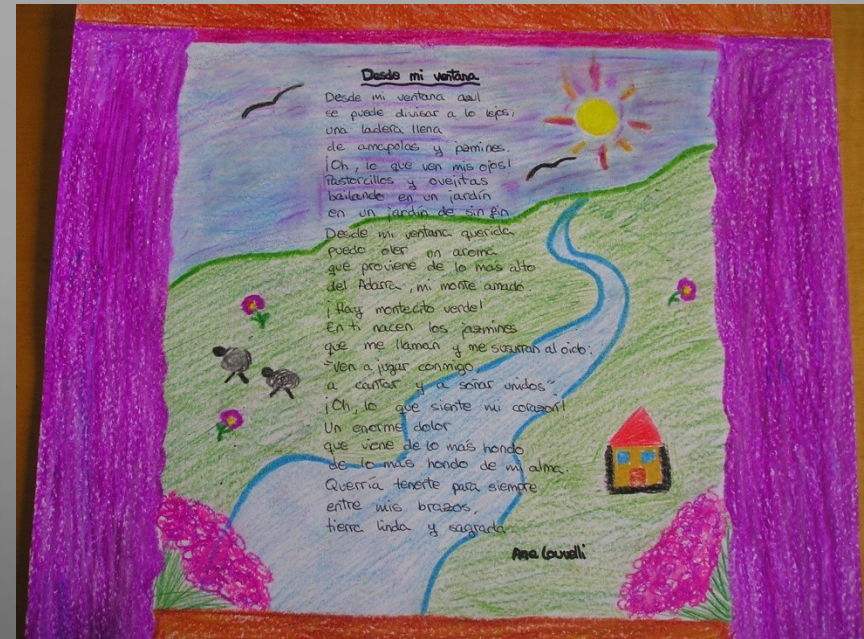 Desde mi ventana
Desde mi ventana azul
se puede divisar a lo lejos,
una ladera llena
de amapolas y jazmines.
¡Oh, lo que ven mis ojos!
Pastorcillos y ovejitas
bailando en un jardín
en un jardín de sin fin
Desde mi ventana querida
puedo oler un aroma
que proviene de lo mas alto
del Adarra, mi monte amado
¡Hay montecito verde!
En ti nacen los jazmines
que me llaman y me susurran al oido:
"Ven a jugar conmigo
a cantar y a soñar unidos"
¡Oh, lo que siente mi corazón!
Un enorme dolor
que viene de lo más hondo
de lo más hondo de mi alma.
Querría tenerte para siempre
entre mis brazos,
tierra linda y sagrada
Ane